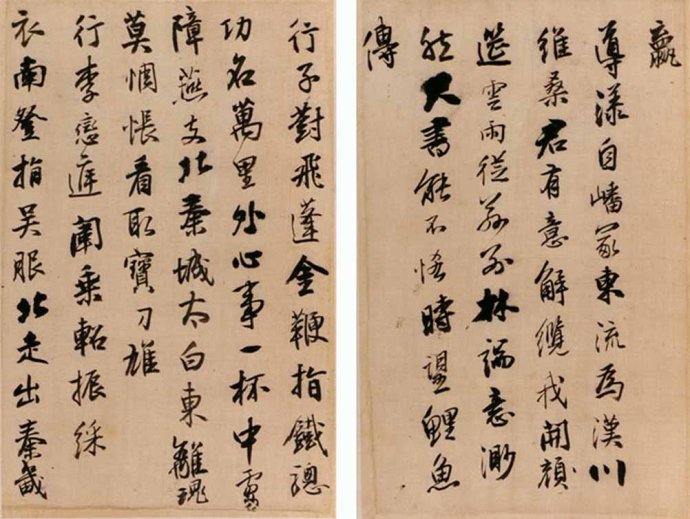 羸
導漾自嶓冢東流為漢川
維桑君有意解纜我開顏
筵雲雨從茲別林端意渺
然尺書能不恡時望鯉魚
傳
行子對飛蓬金鞭指鐵驄
功名萬里外心事一杯中虜
障燕支北秦城太白東離魂
莫惆悵看取寶刀雄
行李戀庭闈乘軺振綵
衣南登指吳服北走出秦畿